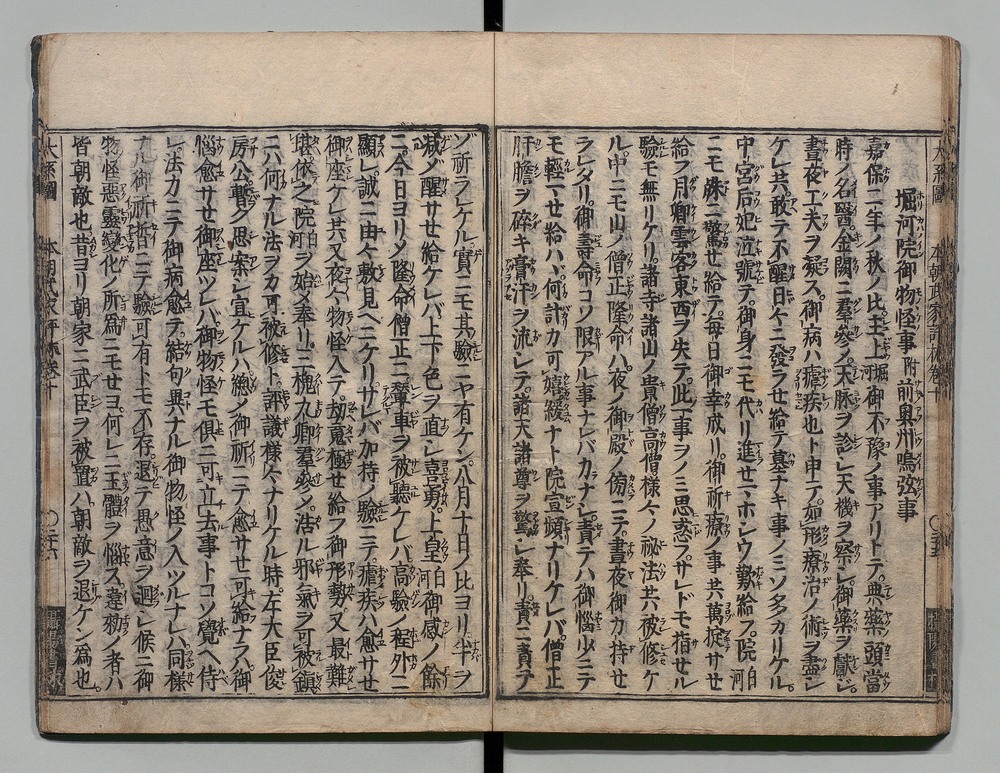 堀河院御物怪事附前奥州鳴弦事
嘉保二年ノ秋ノ比主上堀河御不豫ノ事アリトテ典藥ノ頭當
時ノ名醫金闕ニ羣參メ天脉ヲ診シ天機ヲ察シ御藥ヲ獻シ
晝夜工夫ヲ凝ス御病ハ瘧疾也ト申テ如形療治ノ術ヲ盡シ
ケレ共敢テ不醒日々ニ發ラせ給テ墓ナキ事ノミソタカリケル
中宮后妃泣號テ御身ニモ代リ進せホシウ歎給フ院白河
ニモ殊ニ驚せ給テ毎日御幸成リ御祈療ノ事共萬掟サせ
給フ月卿雲客東西ヲ失テ此一事ヲノミ思惑フサレドモ指せル
驗モ無リケリ諸寺諸山ノ貴僧高僧様々ノ祕法共被修ケ
ル中ニモ山ノ僧正隆命ハ夜ノ御殿ノ傍ニテ晝夜御カ持せ
ラレタリ御壽命コソ限アル事ナレバカナシ責テハ御惱少ミテ
モ輕マせ給ハヽ何計カ可嬉緩ナト院宣頻ナリケレバ僧正
肝膽ヲ碎キ膏汗ヲ流レテ諸天諸尊ヲ驚レ奉リ責ニ責テ
ゾ祈ラレケル實ニモ其驗ニヤ有ケン八月十日ノ比ヨリ半ヲ
減ゾ醒サせ給ケレバ上下色ヲ直シ喜勇ト上皇白河御感ノ餘
ニ今日ヨリメ隆命僧正ニ輦車ヲ被聽ケレバ高驗ノ程外ニ
顯レ誠ニ由々敷見ヘニケリサレバ加持ノ驗ニテ瘧疾ハ愈サせ
御座ケレ共又夜々物怪入テ劫寃極せ給フ御形勢又最難
堪依之院白河ヲ始メ奉リ三槐九卿羣參メ浩ル邪氣ヲ可被鎭
ニハ何ナル法ヲカ可被修ト評議様々ナリケル時左大臣俊
房公暫ク思案シ宣ケルハ總ノ御祈ニテ愈サせ可給ナラハ御
惱愈サせ御座ツレバ御物怪モ俱ニ可立去事トコソ覺ヘ侍
レ法力ニテ御病愈テ結句異ナル御物怪ノ入ツルナレハ同様
ナル御祈誓ニテ驗可有トモ不存退テ愚意ヲ廻レ候ニ御
物怪惡靈變化ノ所爲ニモせヨ何レニ玉體ヲ惱ス違勅ノ者ハ
皆朝敵也昔ヨリ朝家ニ武臣ヲ被置ハ朝敵ヲ退ケン爲也